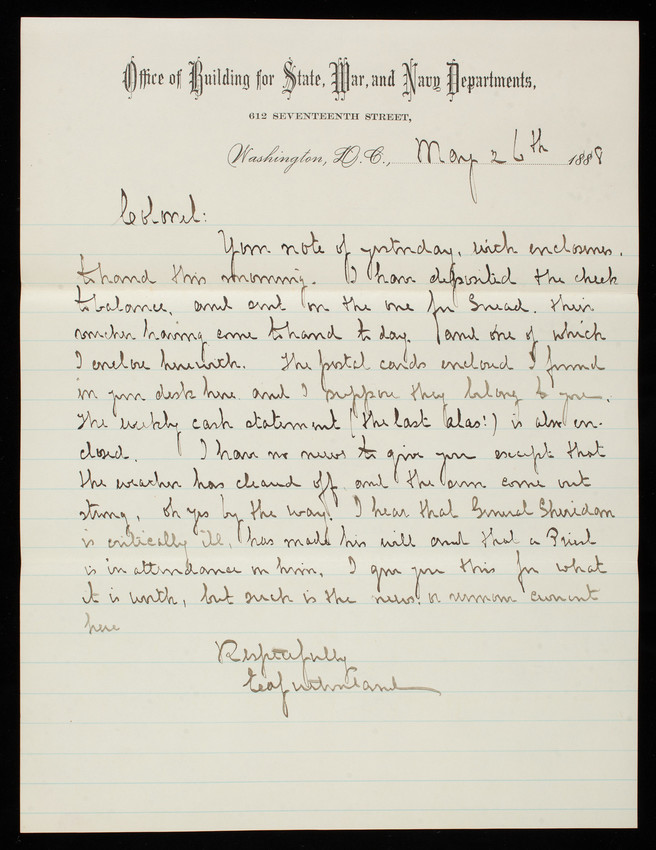 Office of Building for State, War, and Navy Departments,
612 SEVENTEENTH STREET,
Washington, D.C., May 26th 1888
Colonel:
Your note of yesterday, with enclosures,
to hand this morning. I have deposited the check
to balance, and sent on the one for Snead. Their
voucher having come to hand to day, (and one of which
I enclose herewith. The postal cards enclosed I found
in your desk here and I suppose they belong to you.
The weekly cash statement (the last alas!) is also en-
closed. I have no news to give you except that
the weather has cleared off and the sun come out
strong, oh yes by the way! I hear that General Sheridan
is critically ill, has made his will and that a Priest
is in attendance on him, I give you this for what
it is worth, but such is the news or rumor current
here
Respectfully